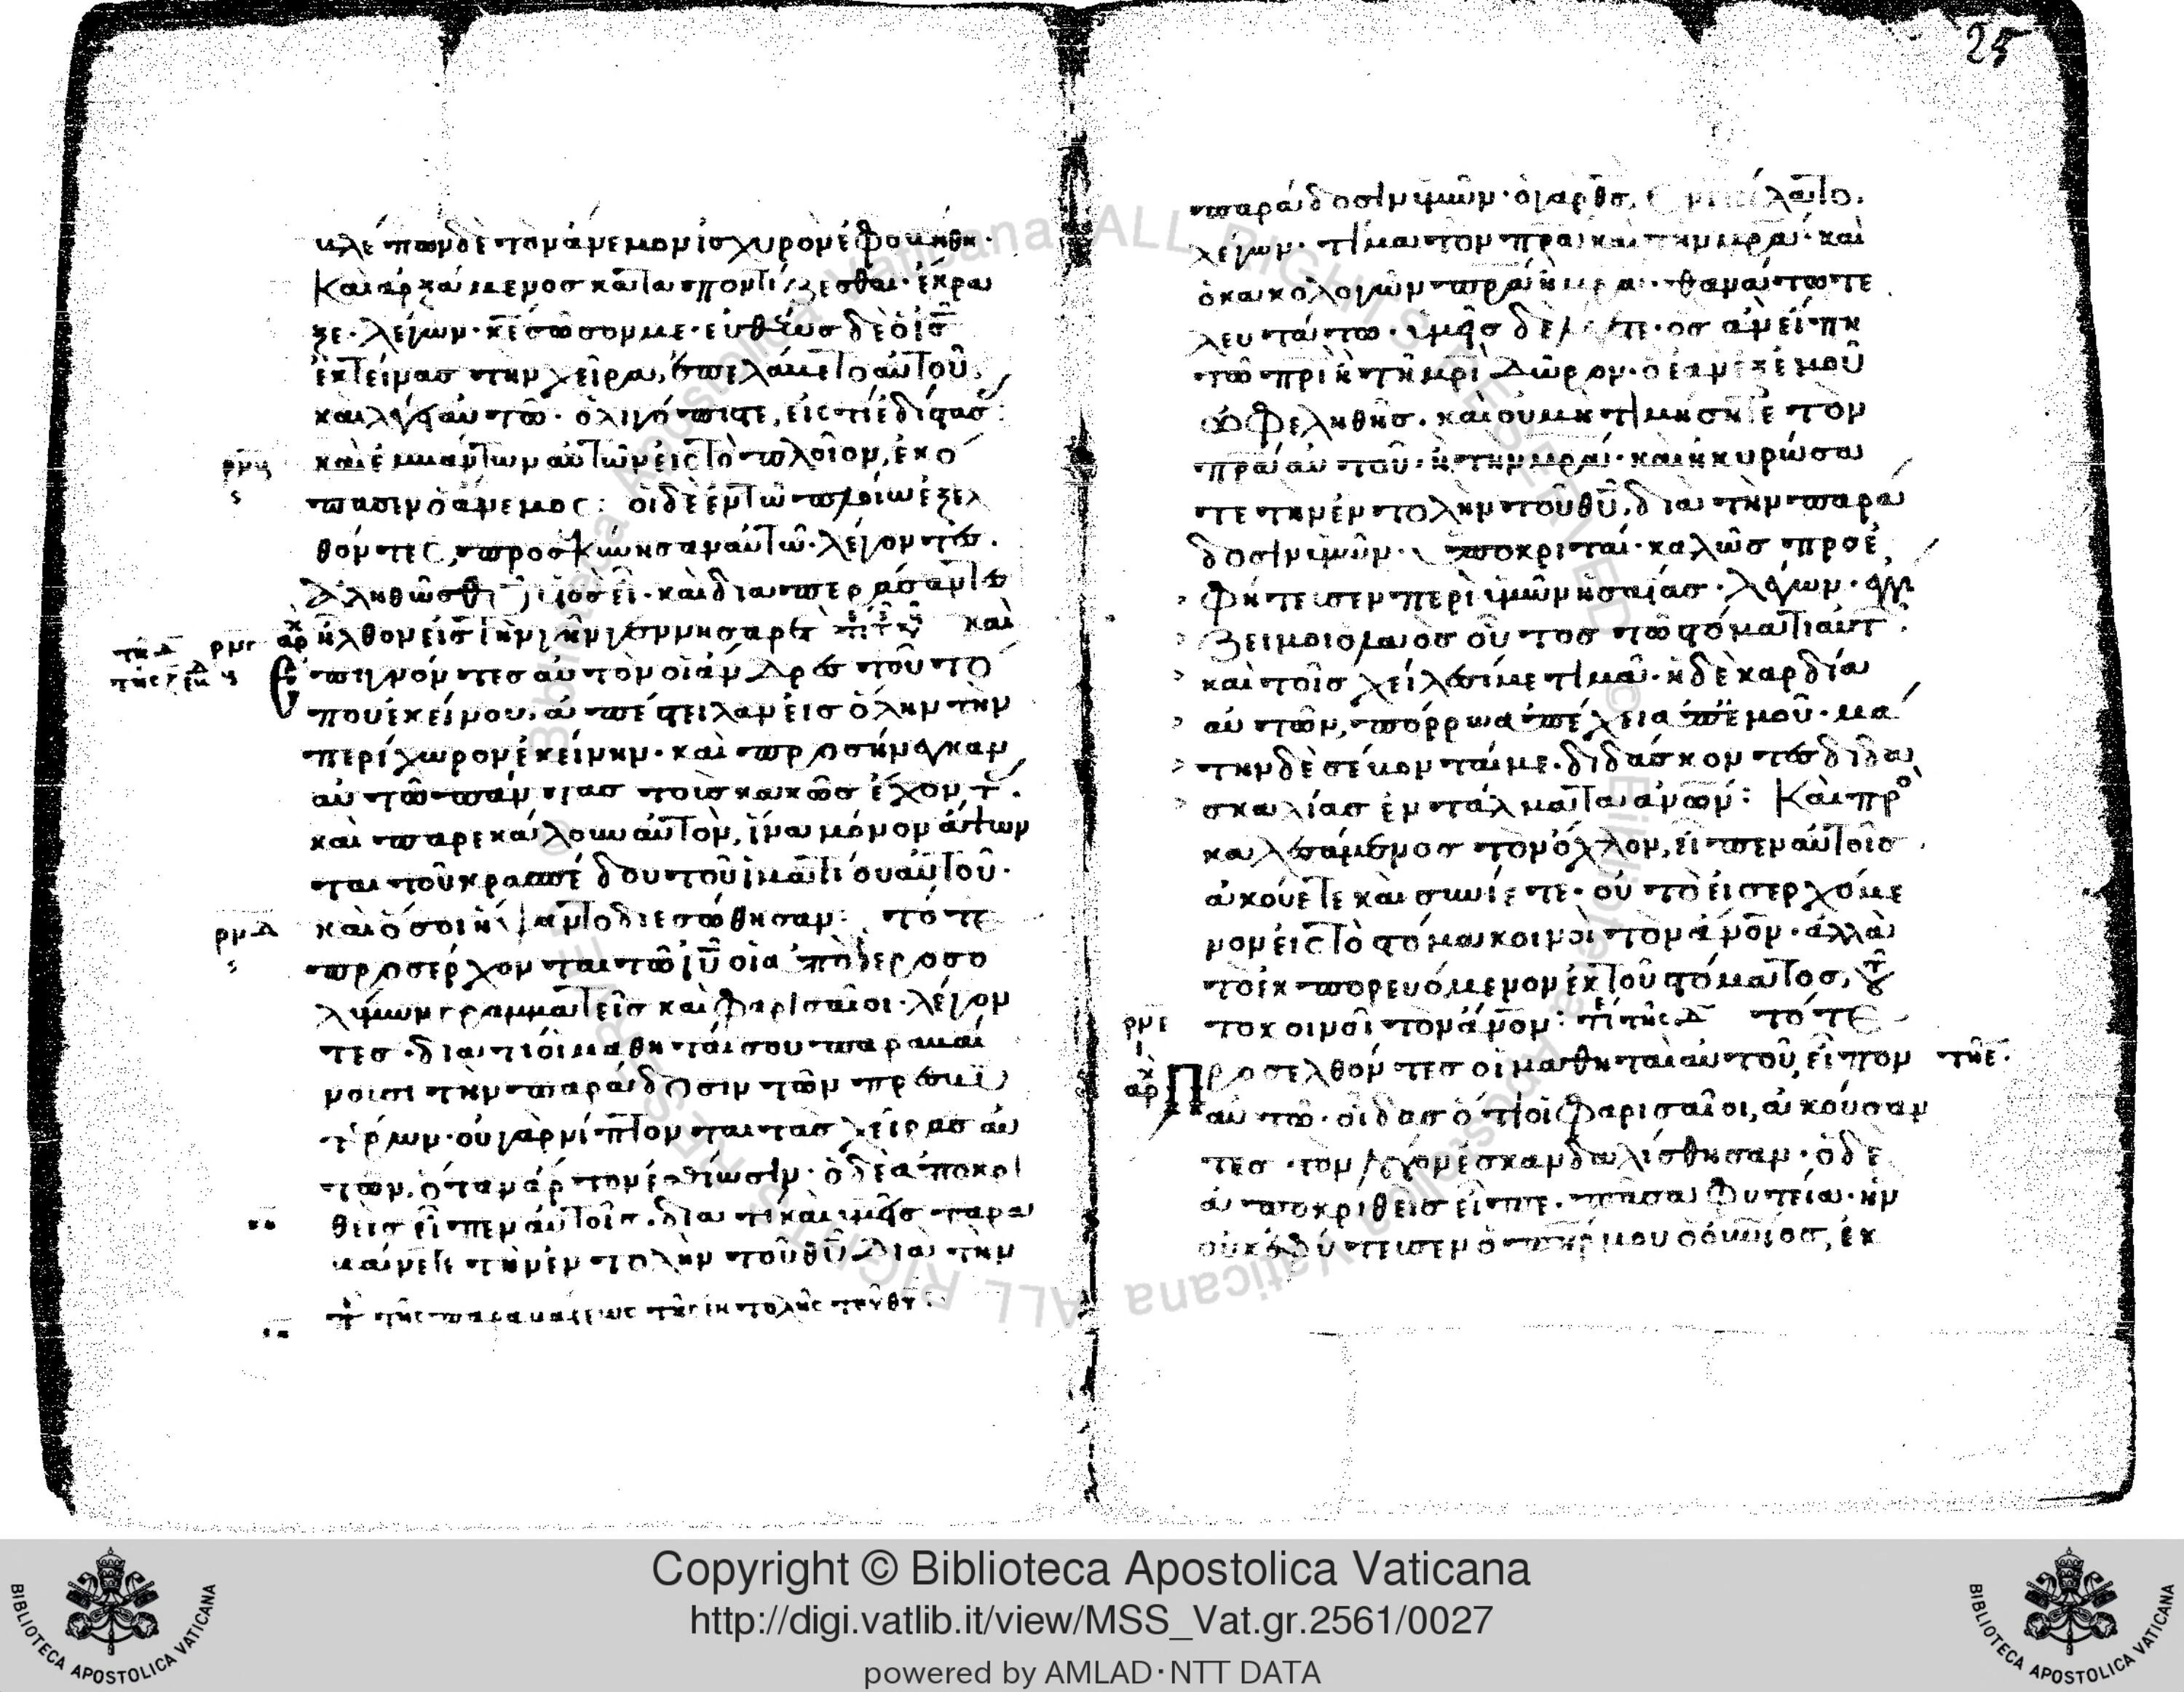 βλέπων δὲ τὸν ἄνεμον ἰσχυρὸν ἐφοβήθη·
Καὶ ἀρξάμενος καταποντίζεσθαι· ἔκρα
ξε· λέγων· κε σῶσον με· εὐθέως δὲ ὁ ις
ἐκτείνας τὴν χεῖρα, ἐπελάβετο αὐτοῦ,
καὶ λέγει αὐτῶ· ὀλιγόπιστε, εἰς τί ἐδίστασ
ρμη καὶ ἐμβάντων αὐτῶν εἰς τὸ πλοῖον, ἐκό
πασιν ὁ ἄνεμος: οἱ δὲ ἐν τῶ πλοίω ἐξελ
θόντες, προσεκύνησαν αὐτῶ· λέγοντες.
Ἀληθῶς θυ
ἦλθον εἰς τὴν γῆν γεννησαρέτ καὶ
ἐπιγνόντες αὐτὸν οἱ ἄνδρες τοῦ τό
που ἐκείνου, ἀπέστειλαν εἰς ὅλην τὴν
περίχωρον ἐκείνην· καὶ προσήνεγκαν
αὐτῶ πάντας τοὺς κακῶς ἔχοντ.
καὶ παρεκάλουν αὐτὸν, ἵνα μόνον ἅψων
ται τοῦ κρασπέδου τοῦ ἱματίου αὐτοῦ·
ρμδ καὶ ὅσοι ἥψαντο διεσώθησαν: τότε
προσέρχονται τῶ ιυ οἱ ἀπὸ ἱεροσο
λύμων γραμματεῖς καὶ φαρισαῖοι· λέγον
τες· διατί οἱ μαθηταί σου παραβαί
νουσι τὴν παράδοσιν τῶν πρεσβυ
τέρων· οὐ γὰρ νίπτονται τὰς χεῖρας αὐ
τῶν, ὅταν ἄρτον ἐσθίωσιν· ὁ δὲ ἀποκρι
θεὶς εἶπεν αὐτοῖς· διατί καὶ ὑμεῖς παρα
βαίνετε τὴν ἐντολὴν τοῦ θυ διὰ τὴν
τῆς παραβάσεως τῆς ἐντολῆς τοῦ θυ
25
παράδοσιν ὑμῶν· ὁ γὰρ θς,
λέγων· τίμα τὸν πρα καὶ τὴν μρα· καὶ
ὁ κακολογῶν πρα ἢ μρα· θανάτω τε
λευτάτω· ὑμεῖς δὲ λέγετε· ὃς ἂν εἴπη
τῶ πρι ἢ τῆ μρι δῶρον· ὃ ἐὰν ἐξ ἐμοῦ
ὠφεληθῆς· καὶ οὐ μὴ τιμήση τὸν
πρα αὐτοῦ· ἢ τὴν μρα· καὶ ἠκυρώσα
τε τὴν ἐντολὴν τοῦ θυ, διὰ τὴν παρά
δοσιν ὑμῶν· ὑποκριταί· καλῶς προε
φήτευσεν περὶ ὑμῶν ἡσαΐας· λέγων· ἐγγί
ζει μοι ὁ λαὸς οὗτος τῶ στόματι αὐτ
καὶ τοῖς χείλεσί με τιμᾶ· ἡ δὲ καρδία
αὐτῶν, πόρρω ἀπέχει ἀπ' ἐμοῦ· μά
την δὲ σέβονταί με· διδάσκοντες διδα
σκαλίας ἐντάλματα ἀνων: Καὶ προ
καλεσάμενος τὸν ὄχλον, εἶπεν αὐτοῖς
ἀκούετε καὶ συνίετε· οὐ τὸ εἰσερχόμε
νον εἰς τὸ στόμα κοινοῖ τὸν ανον· ἀλλὰ
τὸ ἐκπορευόμενον ἐκ τοῦ στόματος,
ρμε το κοινοῖ τὸν ανον: τότε
Προσελθόντες οἱ μαθηταὶ αὐτοῦ, εἶπον
αὐτῶ· οἶδας ὅτι οἱ φαρισαῖοι, ἀκούσαν
τες τὸν λόγον ἐσκανδαλίσθησαν· ὁ δὲ
ἀποκριθεὶς εἶπε· πᾶσα φυτεία· ἣν
οὐκ ἐφύτευσεν ὁ πηρ μου ὁ ουνιος, ἐκ
Copyright © Biblioteca Apostolica Vaticana
http://digi.vatlib.it/view/MSS_Vat.gr.2561/0027
powered by AMLAD·NTT DATA
BIBLIOTECA APOSTOLICA VATICANA
BIBLIOTECA APOSTOLICA VATICANA